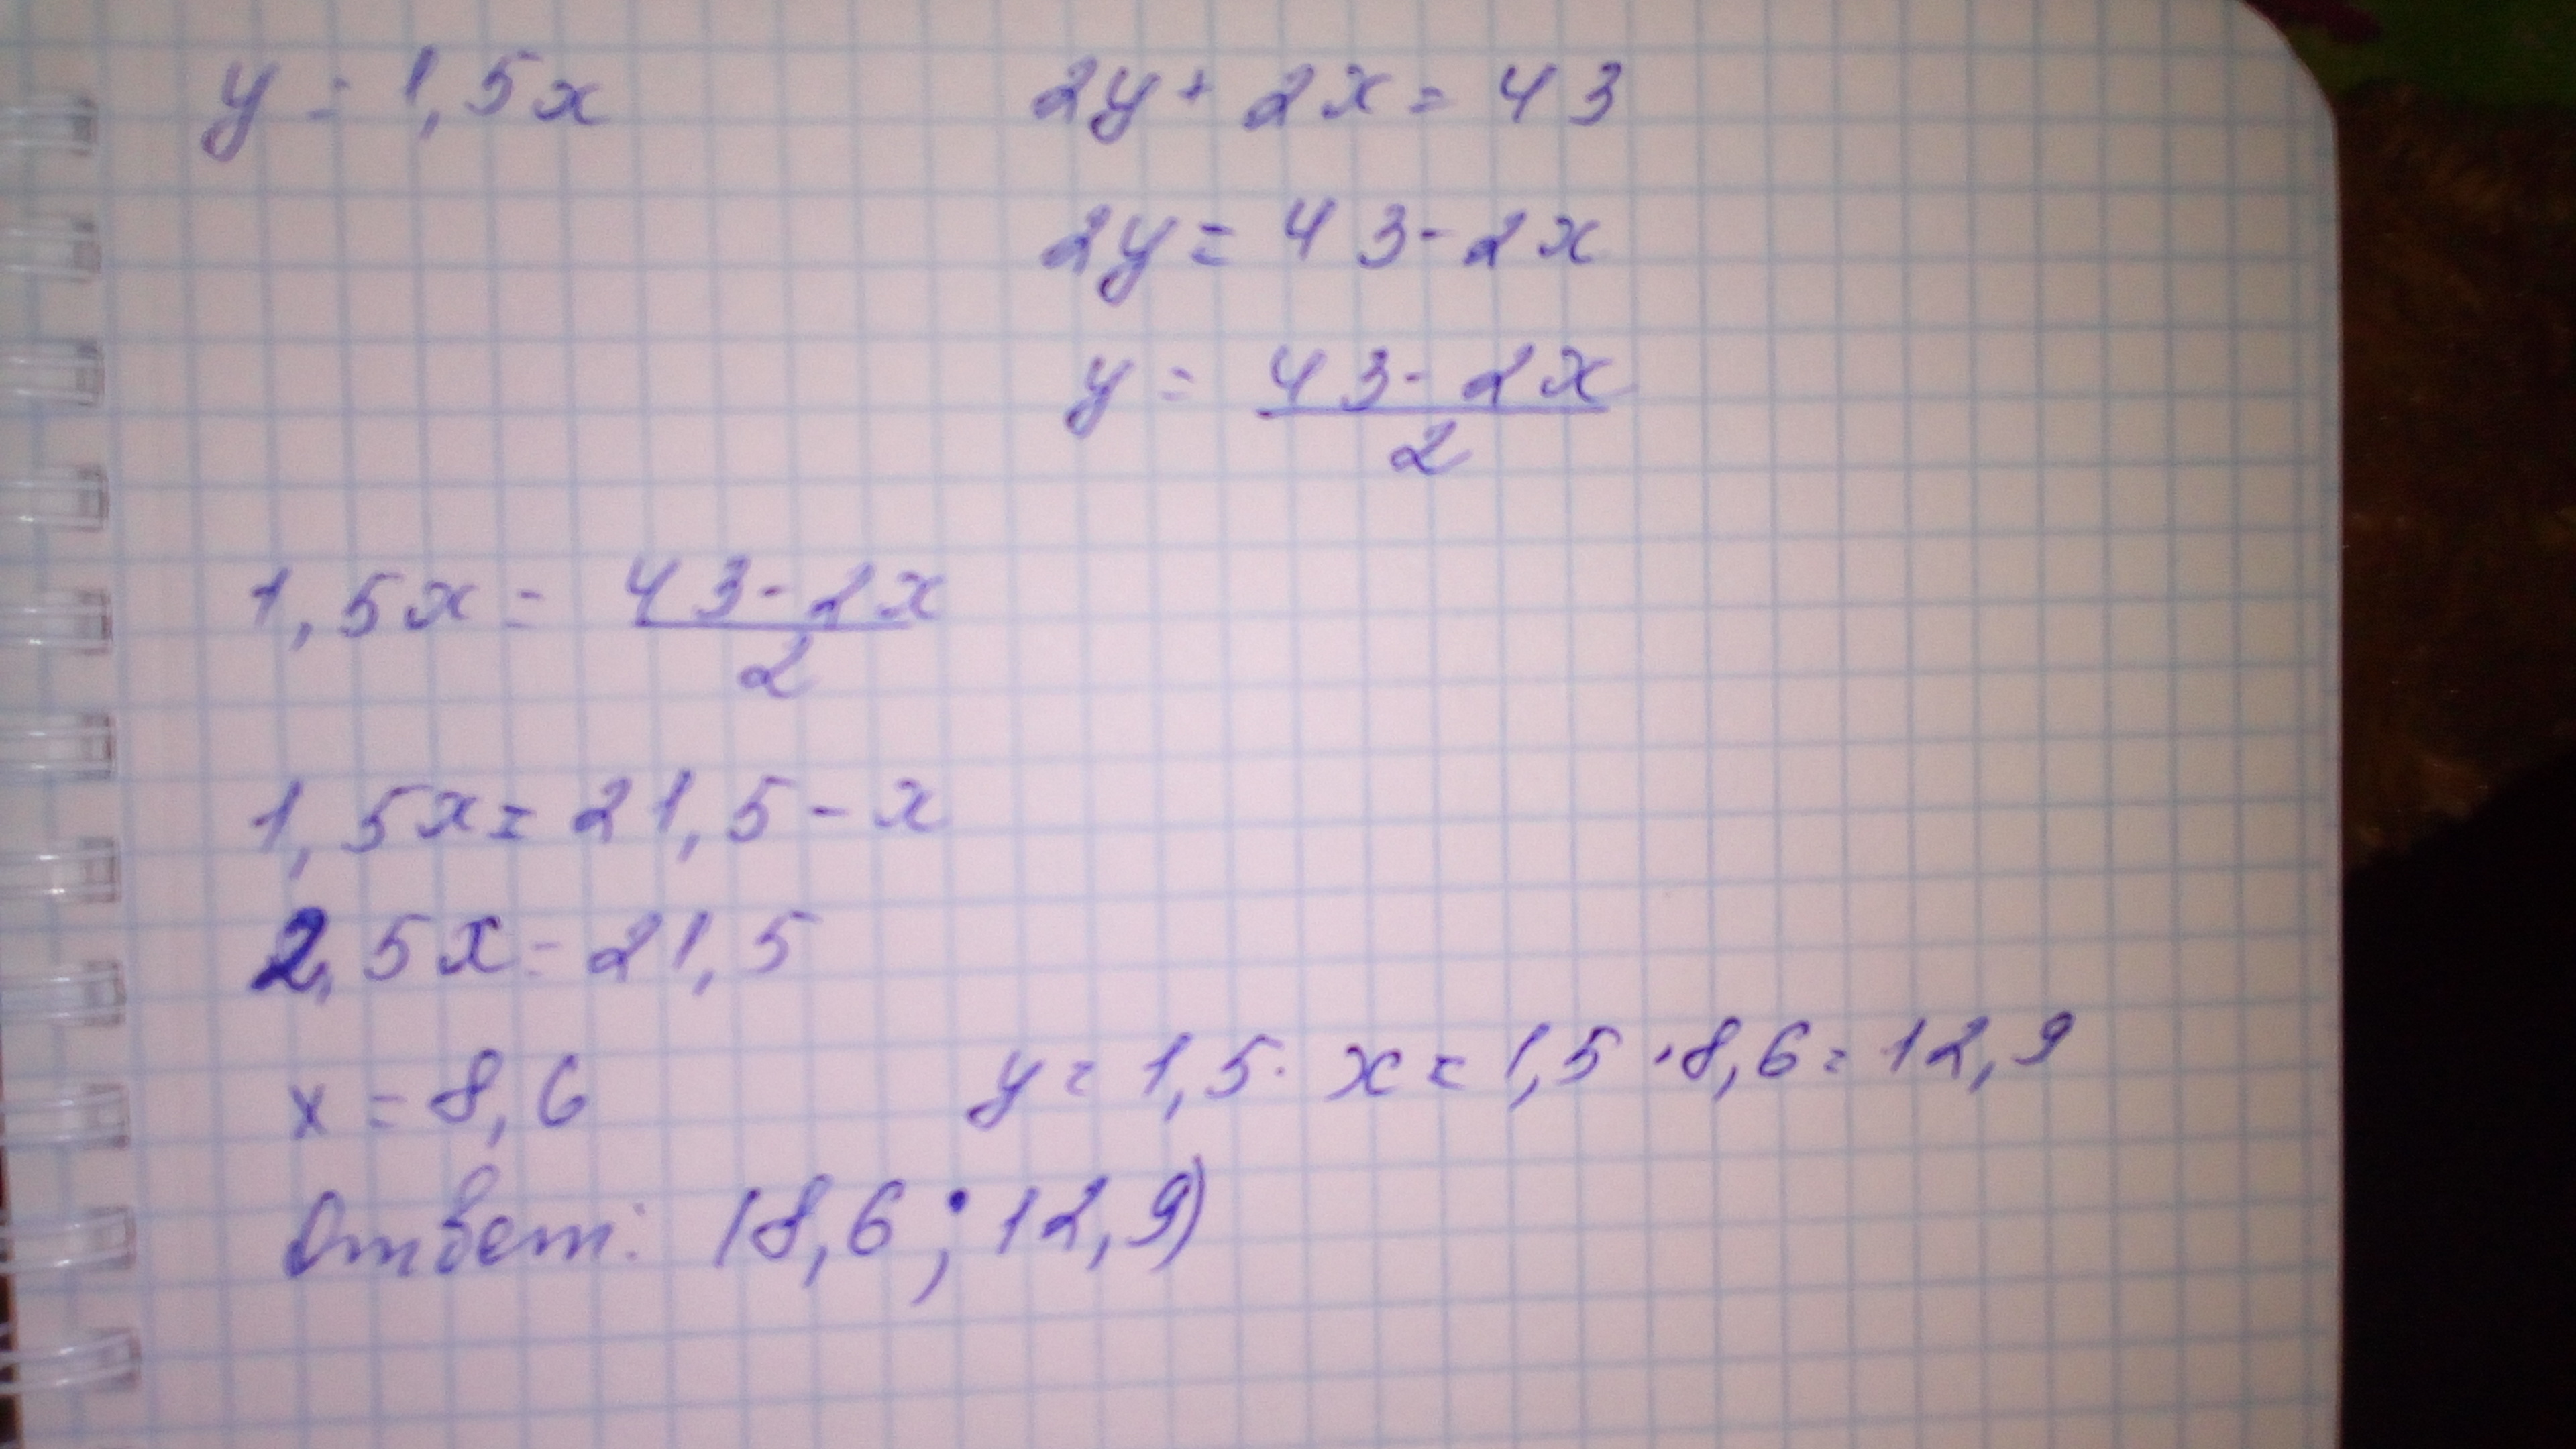 y = 1,5x
2y + 2x = 43
2y = 43 - 2x
y = 43 - 2x
2
1,5x = 43 - 2x
2
1,5x = 21,5 - x
2,5x = 21,5
x = 8,6
y = 1,5 · x = 1,5 · 8,6 = 12,9
Ответ: (8,6 ; 12,9)